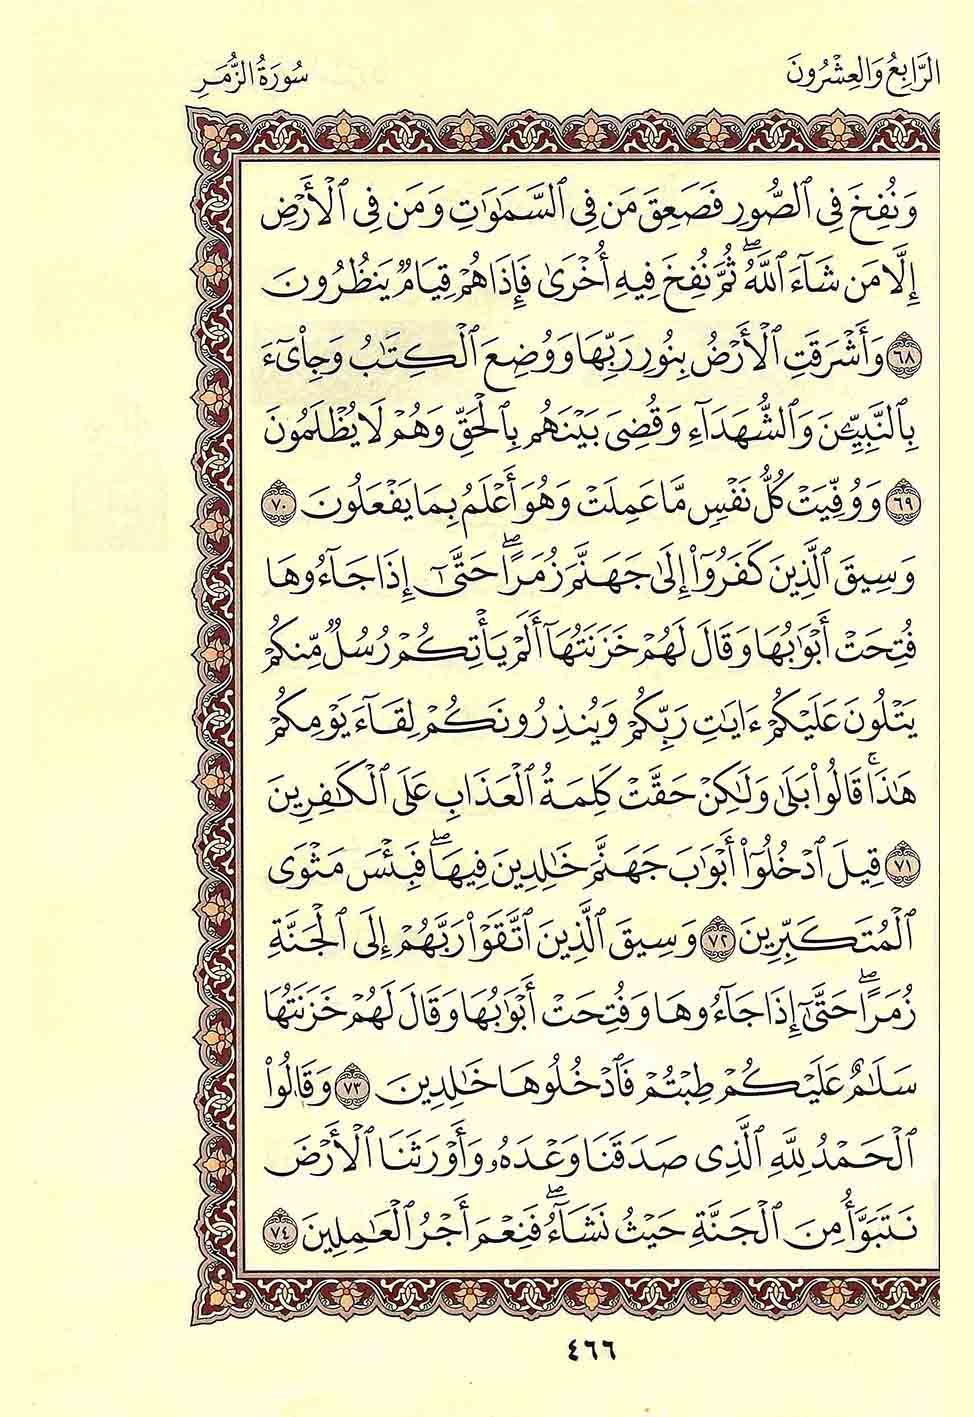 الرَّابِعُ وَالعِشْرُونَ
سُورَةُ الزُّمَرِ
وَنُفِخَ فِي ٱلصُّورِ فَصَعِقَ مَن فِي ٱلسَّمَٰوَٰتِ وَمَن فِي ٱلْأَرْضِ
إِلَّا مَن شَآءَ ٱللَّهُۖ ثُمَّ نُفِخَ فِيهِ أُخْرَىٰ فَإِذَا هُمْ قِيَامٌ يَنظُرُونَ
٦٨ وَأَشْرَقَتِ ٱلْأَرْضُ بِنُورِ رَبِّهَا وَوُضِعَ ٱلْكِتَٰبُ وَجِا۟يٓءَ
بِٱلنَّبِيِّـۧنَ وَٱلشُّهَدَآءِ وَقُضِيَ بَيْنَهُم بِٱلْحَقِّ وَهُمْ لَا يُظْلَمُونَ
٦٩ وَوُفِّيَتْ كُلُّ نَفْسٍ مَّا عَمِلَتْ وَهُوَ أَعْلَمُ بِمَا يَفْعَلُونَ ٧٠
وَسِيقَ ٱلَّذِينَ كَفَرُوٓا۟ إِلَىٰ جَهَنَّمَ زُمَرًاۖ حَتَّىٰٓ إِذَا جَآءُوهَا
فُتِحَتْ أَبْوَٰبُهَا وَقَالَ لَهُمْ خَزَنَتُهَآ أَلَمْ يَأْتِكُمْ رُسُلٌ مِّنكُمْ
يَتْلُونَ عَلَيْكُمْ ءَايَٰتِ رَبِّكُمْ وَيُنذِرُونَكُمْ لِقَآءَ يَوْمِكُمْ
هَٰذَاۚ قَالُوا۟ بَلَىٰ وَلَٰكِنْ حَقَّتْ كَلِمَةُ ٱلْعَذَابِ عَلَى ٱلْكَٰفِرِينَ
٧١ قِيلَ ٱدْخُلُوٓا۟ أَبْوَٰبَ جَهَنَّمَ خَٰلِدِينَ فِيهَاۖ فَبِئْسَ مَثْوَى
ٱلْمُتَكَبِّرِينَ ٧٢ وَسِيقَ ٱلَّذِينَ ٱتَّقَوْا۟ رَبَّهُمْ إِلَى ٱلْجَنَّةِ
زُمَرًاۖ حَتَّىٰٓ إِذَا جَآءُوهَا وَفُتِحَتْ أَبْوَٰبُهَا وَقَالَ لَهُمْ خَزَنَتُهَا
سَلَٰمٌ عَلَيْكُمْ طِبْتُمْ فَٱدْخُلُوهَا خَٰلِدِينَ ٧٣ وَقَالُوا۟
ٱلْحَمْدُ لِلَّهِ ٱلَّذِي صَدَقَنَا وَعْدَهُۥ وَأَوْرَثَنَا ٱلْأَرْضَ
نَتَبَوَّأُ مِنَ ٱلْجَنَّةِ حَيْثُ نَشَآءُۖ فَنِعْمَ أَجْرُ ٱلْعَٰمِلِينَ ٧٤
٤٦٦